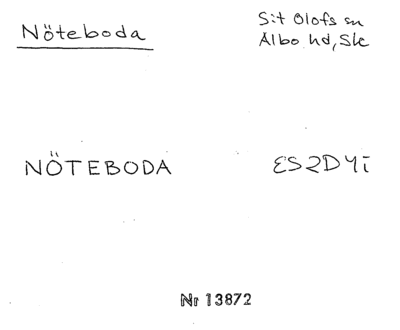 Nöteboda
S:t Olofs sn
Albo hd, Sk
NÖTEBODA
ES2D4i
Nr 13872